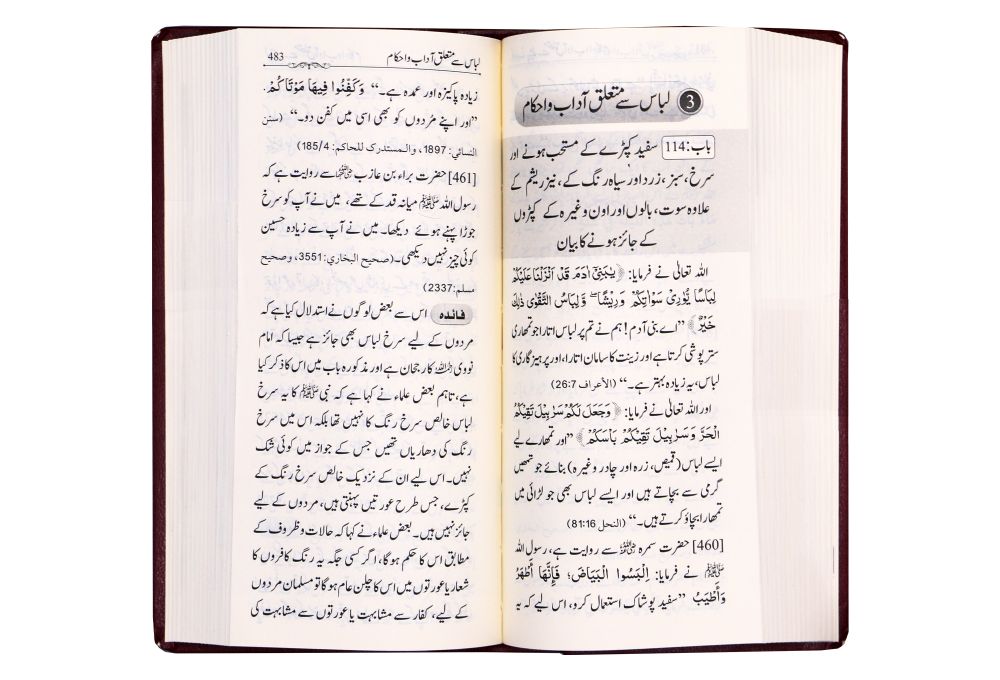 3 لباس سے متعلق آداب و احکام
باب:114 سفید کپڑے کے مستحب ہونے اور
سرخ، سبز، زرد اور سیاہ رنگ کے، نیز ریشم کے
علاوہ سوت، بالوں اور اون وغیرہ کے کپڑوں
کے جائز ہونے کا بیان
اللہ تعالی نے فرمایا: ﴿یٰبَنِیْۤ اٰدَمَ قَدْ اَنْزَلْنَا عَلَیْكُمْ
لِبَاسًا یُّوَارِیْ سَوْاٰتِكُمْ وَرِیْشًا ؕ وَلِبَاسُ التَّقْوٰی ذٰلِكَ
خَیْرٌ﴾ ”اے بنی آدم! ہم نے تم پر لباس اتارا جو تمھاری
ستر پوشی کرتا ہے اور زینت کا سامان اتارا، اور پرہیز گاری کا
لباس، یہ زیادہ بہتر ہے۔“ (الأعراف 26:7)
اور اللہ تعالی نے فرمایا: ﴿وَجَعَلَ لَكُمْ سَرَابِیْلَ تَقِیْكُمُ
الْحَرَّ وَسَرَابِیْلَ تَقِیْكُمْ بَاْسَكُمْ﴾ ”اور تمھارے لیے
ایسے لباس (قمیص، زرہ اور چادر وغیرہ) بنائے جو تمھیں
گرمی سے بچاتے ہیں اور ایسے لباس بھی جو لڑائی میں
تمھارا بچاؤ کرتے ہیں۔“ (النحل 81:16)
[460] حضرت سمرہ رضی اللہ عنہ سے روایت ہے، رسول اللہ
ﷺ نے فرمایا: اِلْبَسُوا الْبَيَاضَ؛ فَإِنَّهَا أَطْهَرُ
وَأَطْيَبُ ”سفید پوشاک استعمال کرو، اس لیے کہ یہ
لباس سے متعلق آداب و احکام 483
زیادہ پاکیزہ اور عمدہ ہے۔“ وَكَفِّنُوا فِيهَا مَوْتَاكُمْ.
”اور اپنے مُردوں کو بھی اسی میں کفن دو۔“ (سنن
النسائي: 1897، والمستدرك للحاكم: 185/4)
[461] حضرت براء بن عازب رضی اللہ عنہ سے روایت ہے کہ
رسول اللہ ﷺ میانہ قد کے تھے، میں نے آپ کو سرخ
جوڑا پہنے ہوئے دیکھا۔ میں نے آپ سے زیادہ حسین
کوئی چیز نہیں دیکھی۔ (صحيح البخاري: 3551، وصحيح
مسلم: 2337)
فائدہ اس سے بعض لوگوں نے استدلال کیا ہے کہ
مردوں کے لیے سرخ لباس بھی جائز ہے جیسا کہ امام
نووی رحمہ اللہ کا رجحان ہے اور مذکورہ باب میں اس کا ذکر کیا
ہے، تاہم بعض علماء نے کہا ہے کہ نبی ﷺ کا یہ سرخ
لباس خالص سرخ رنگ کا نہیں تھا بلکہ اس میں سرخ
رنگ کی دھاریاں تھیں جس کے جواز میں کوئی شک
نہیں۔ اس لیے ان کے نزدیک خالص سرخ رنگ کے
کپڑے، جس طرح عورتیں پہنتی ہیں، مردوں کے لیے
جائز نہیں ہیں۔ بعض علماء نے کہا کہ حالات و ظروف کے
مطابق اس کا حکم ہوگا، اگر کسی جگہ یہ رنگ کافروں کا
شعار یا عورتوں میں اس کا چلن عام ہوگا تو مسلمان مردوں
کے لیے، کفار سے مشابہت یا عورتوں سے مشابہت کی